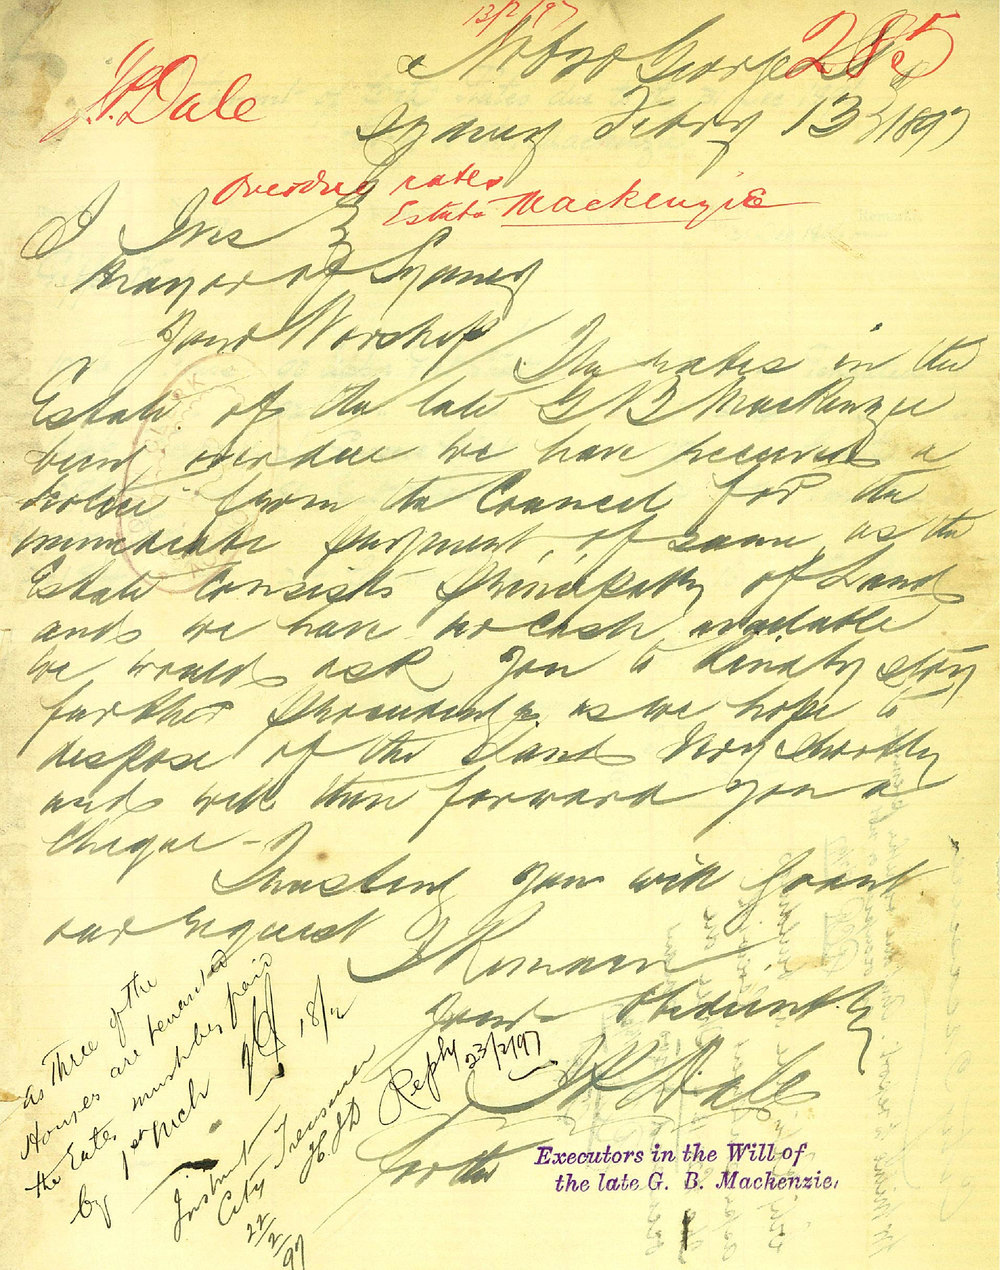 13/2/97
285
J. P. Dale
George St
Sydney Febry 13 / 1897
Overdue rates
Estate Mackenzie
I Ives
Mayor of Sydney
Your Worship / The rates in the
Estate of the late G B MacKenzie
been overdue we have received a
notice from the Council for the
immediate payment of same, as the
Estate consists principally of Land
and we have no cash available
we would ask you to kindly stay
further proceedings as we hope to
dispose of the Land very shortly
and will then forward you a
Cheque -
Trusting you will grant
our request
I Remain
Yours Obediently
Dale
For the
Executors in the Will of
the late G. B. Mackenzie.
as Three of the
Houses are tenanted
the Rates must be paid
by 1st Mch
18/2
Instruct
City Treasurer
22/2/97
Reply
23/2/97